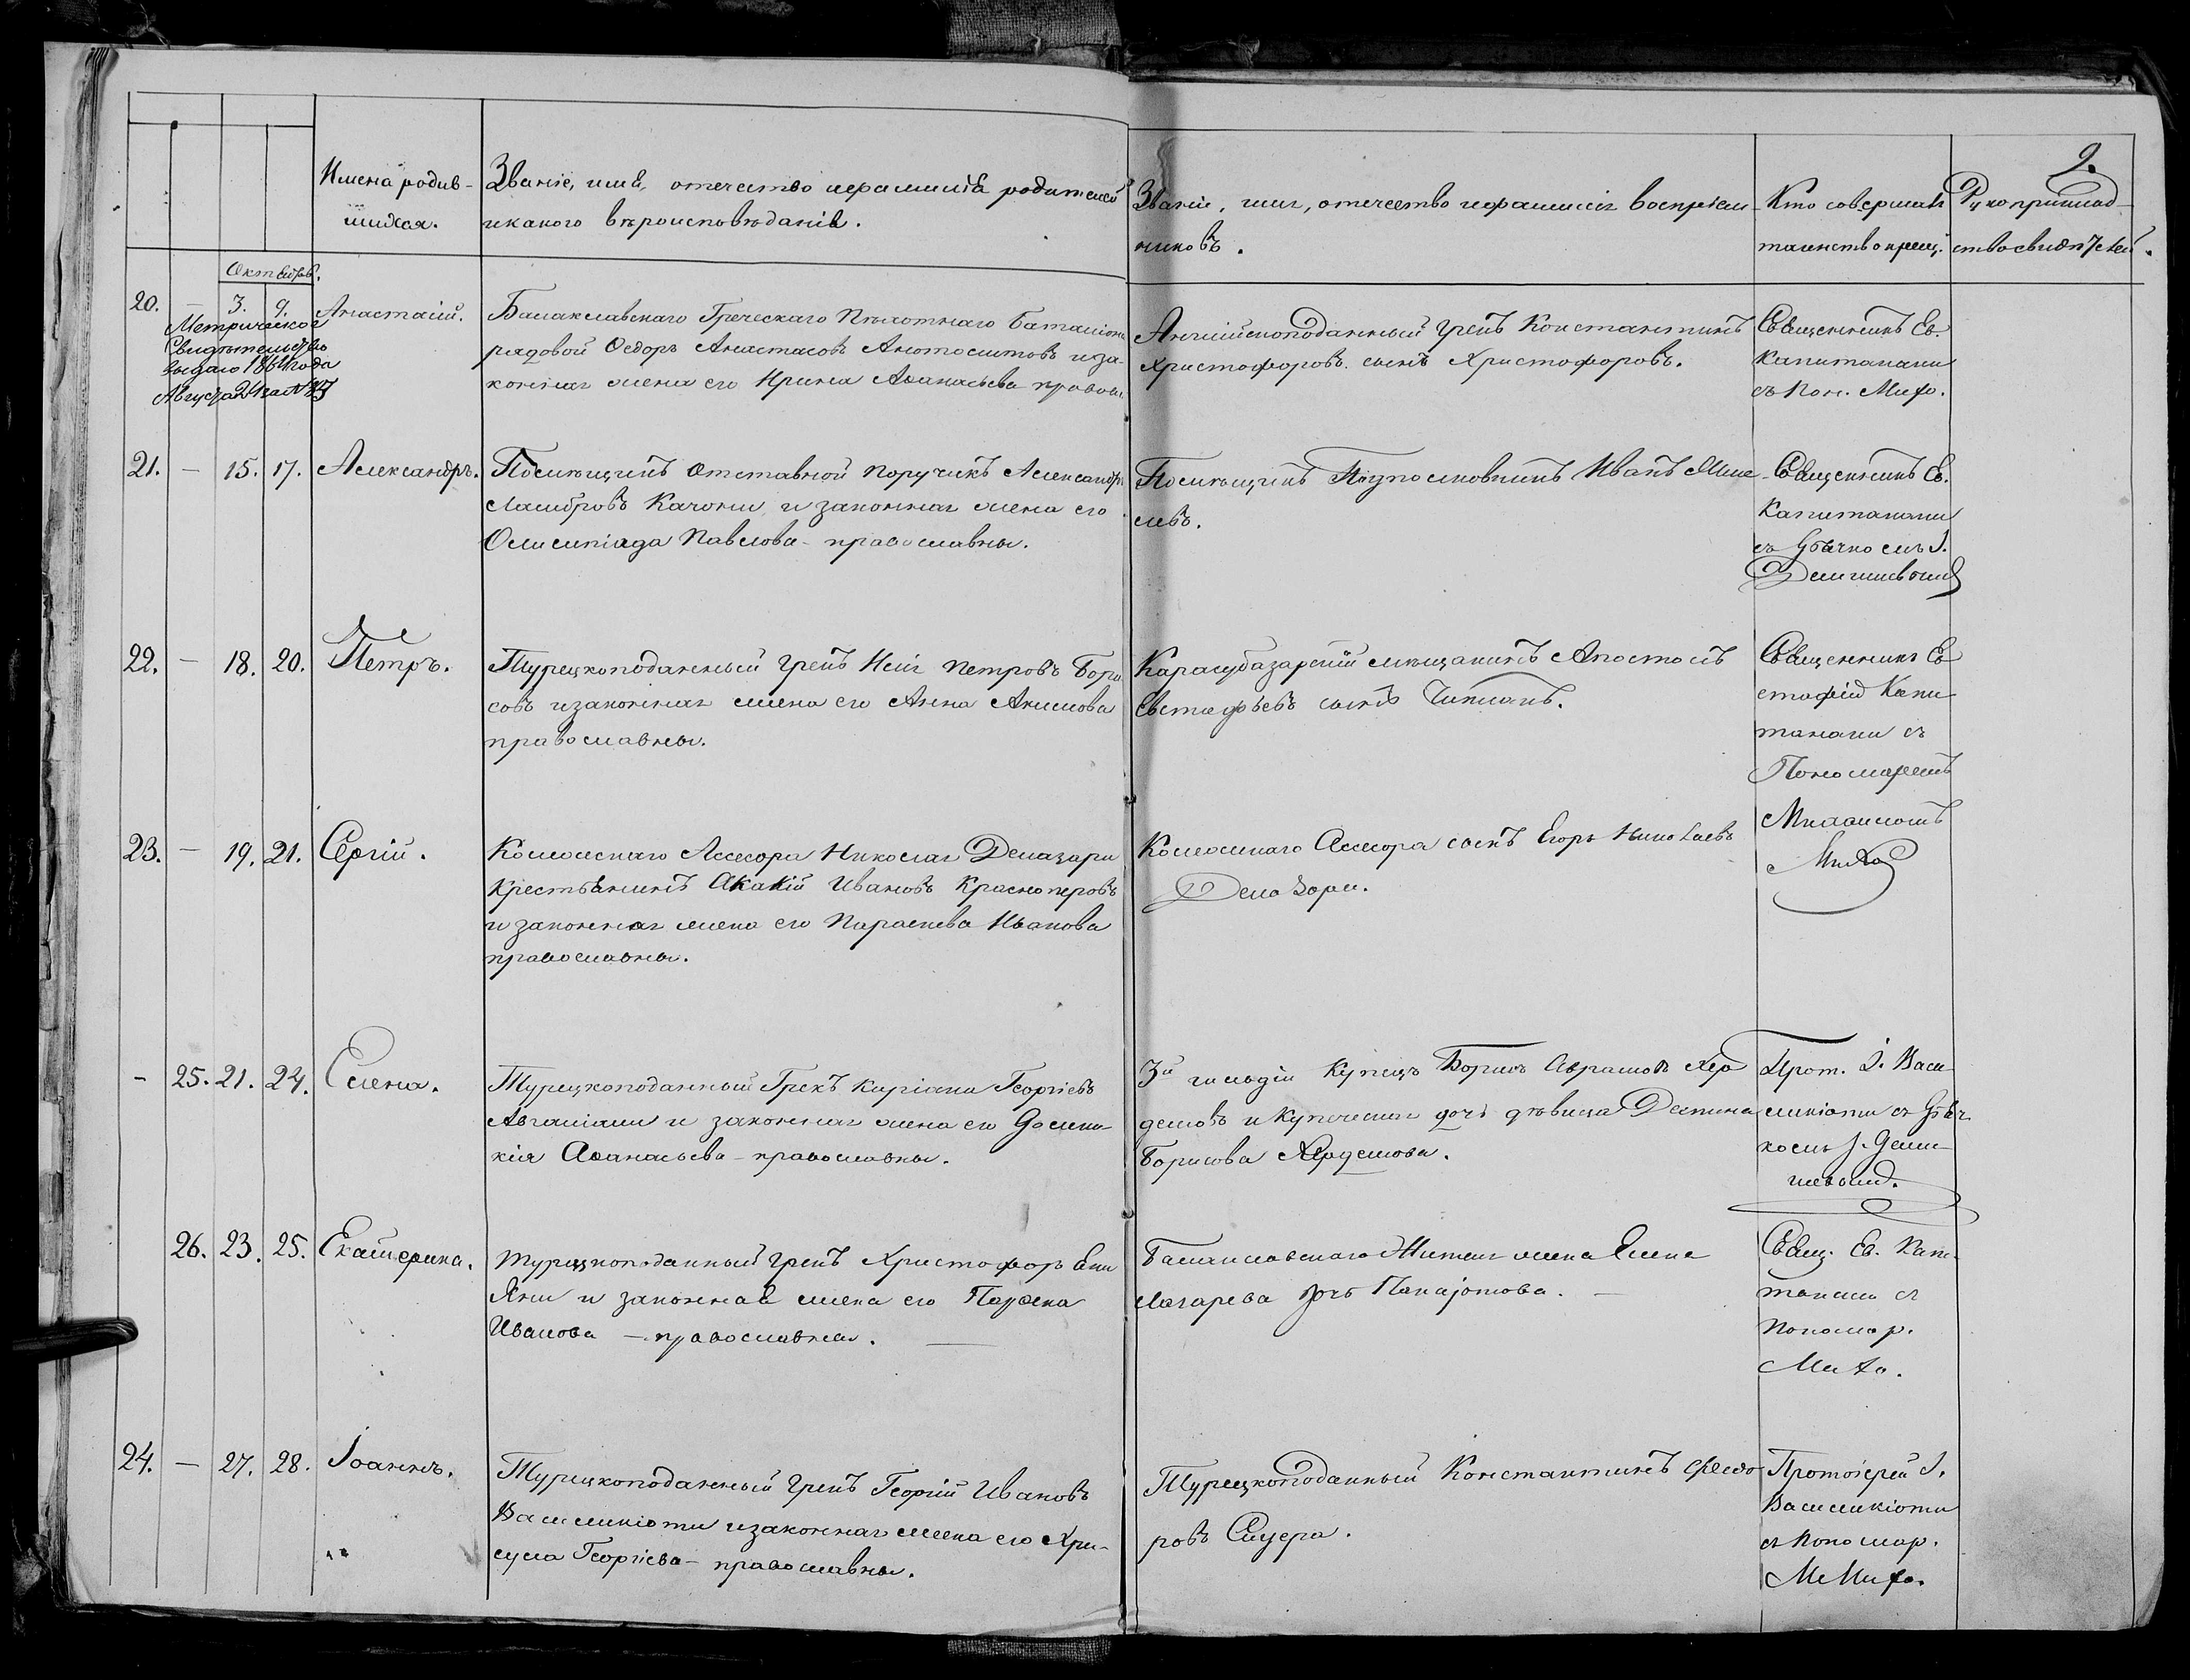 2.
Имена родив-
шихся.
Званіе, имя, отечество и фамилія родителей
и какого вѣроисповѣданія.
Званіе, имя, отечество и фамилія воспріем-
никовъ.
Кто совершалъ
таинство крещ.
Рукоприклад-
ство свидѣтелей.
Октября.
20. — 3. 9. Анастасій.
Метрическое
Свидѣтельство
выдано 1864 года
Августа 24 за №
Балаклавскаго Греческаго Пѣхотнаго баталіона
рядовой Ѳедоръ Анастасовъ и за-
конная жена его Ирина Аѳанасьева правосл.
Англійскоподданный Грекъ Константинъ
Христофоровъ сынъ Христофоровъ.
Священникъ Ев.
Капитанаки
съ Пон. Михо.
21. — 15. 17. Александръ.
Помѣщикъ Отставной Поручикъ Александръ
Ламбровъ Качони, и законная жена его
Олимпіада Павлова - православны.
Помѣщикъ Подполковникъ Иванъ
левъ.
Священникъ Ев.
Капитанаки
съ дьячкомъ І.
22. — 18. 20. Петръ.
Турецкоподданный Грекъ Илія Петровъ Бори
совъ и законная жена его Анна Акимова
православны.
Карасубазарскій мѣщанинъ Апостолъ
Евстафьевъ сынъ Чикманъ.
Священникъ Ев
стафій Капи
танаки съ
Пономаремъ
Михаиломъ
Михо
23. — 19. 21. Сергій.
Коллежскаго Ассесора Николая Делазари
Крестьянинъ Акакій Ивановъ Красноперовъ
и законная жена его Параскева Иванова
православны.
Коллежскаго Ассесора сынъ Егоръ Николаевъ
Делазари.
- 25. 21. 24. Елена.
Турецкоподданный Грекъ Киріаки Георгіевъ
и законная жена его Домни-
кія Аѳанасьева - православны.
3й гильдіи Купецъ Борисъ Аврамовъ Хер
демовъ и Купеческая дочь дѣвица Деспина
Борисова Хердемова.
Прот. І. Васи
ликіоти съ дьяч.
комъ І.
26. 23. 25. Екатерина.
Турецкоподданный Грекъ Христофоръ
Яни и законная жена его
Иванова — православны. —
Балаклавскаго Жителя жена Елена
Лазарева Панаjотова. —
Свящ. Ев. Капи-
танаки съ
Пономар.
Михо.
24. — 27. 28. Іоаннъ.
Турецкоподданный Грекъ Георгій Ивановъ
Василикіоти и законная жена его Хри-
сула Георгіева - православны.
Турецкоподданный Константинъ Ѳедо
ровъ
Протоіерей І.
Василикіоти
съ Пономар.
М. Михо.